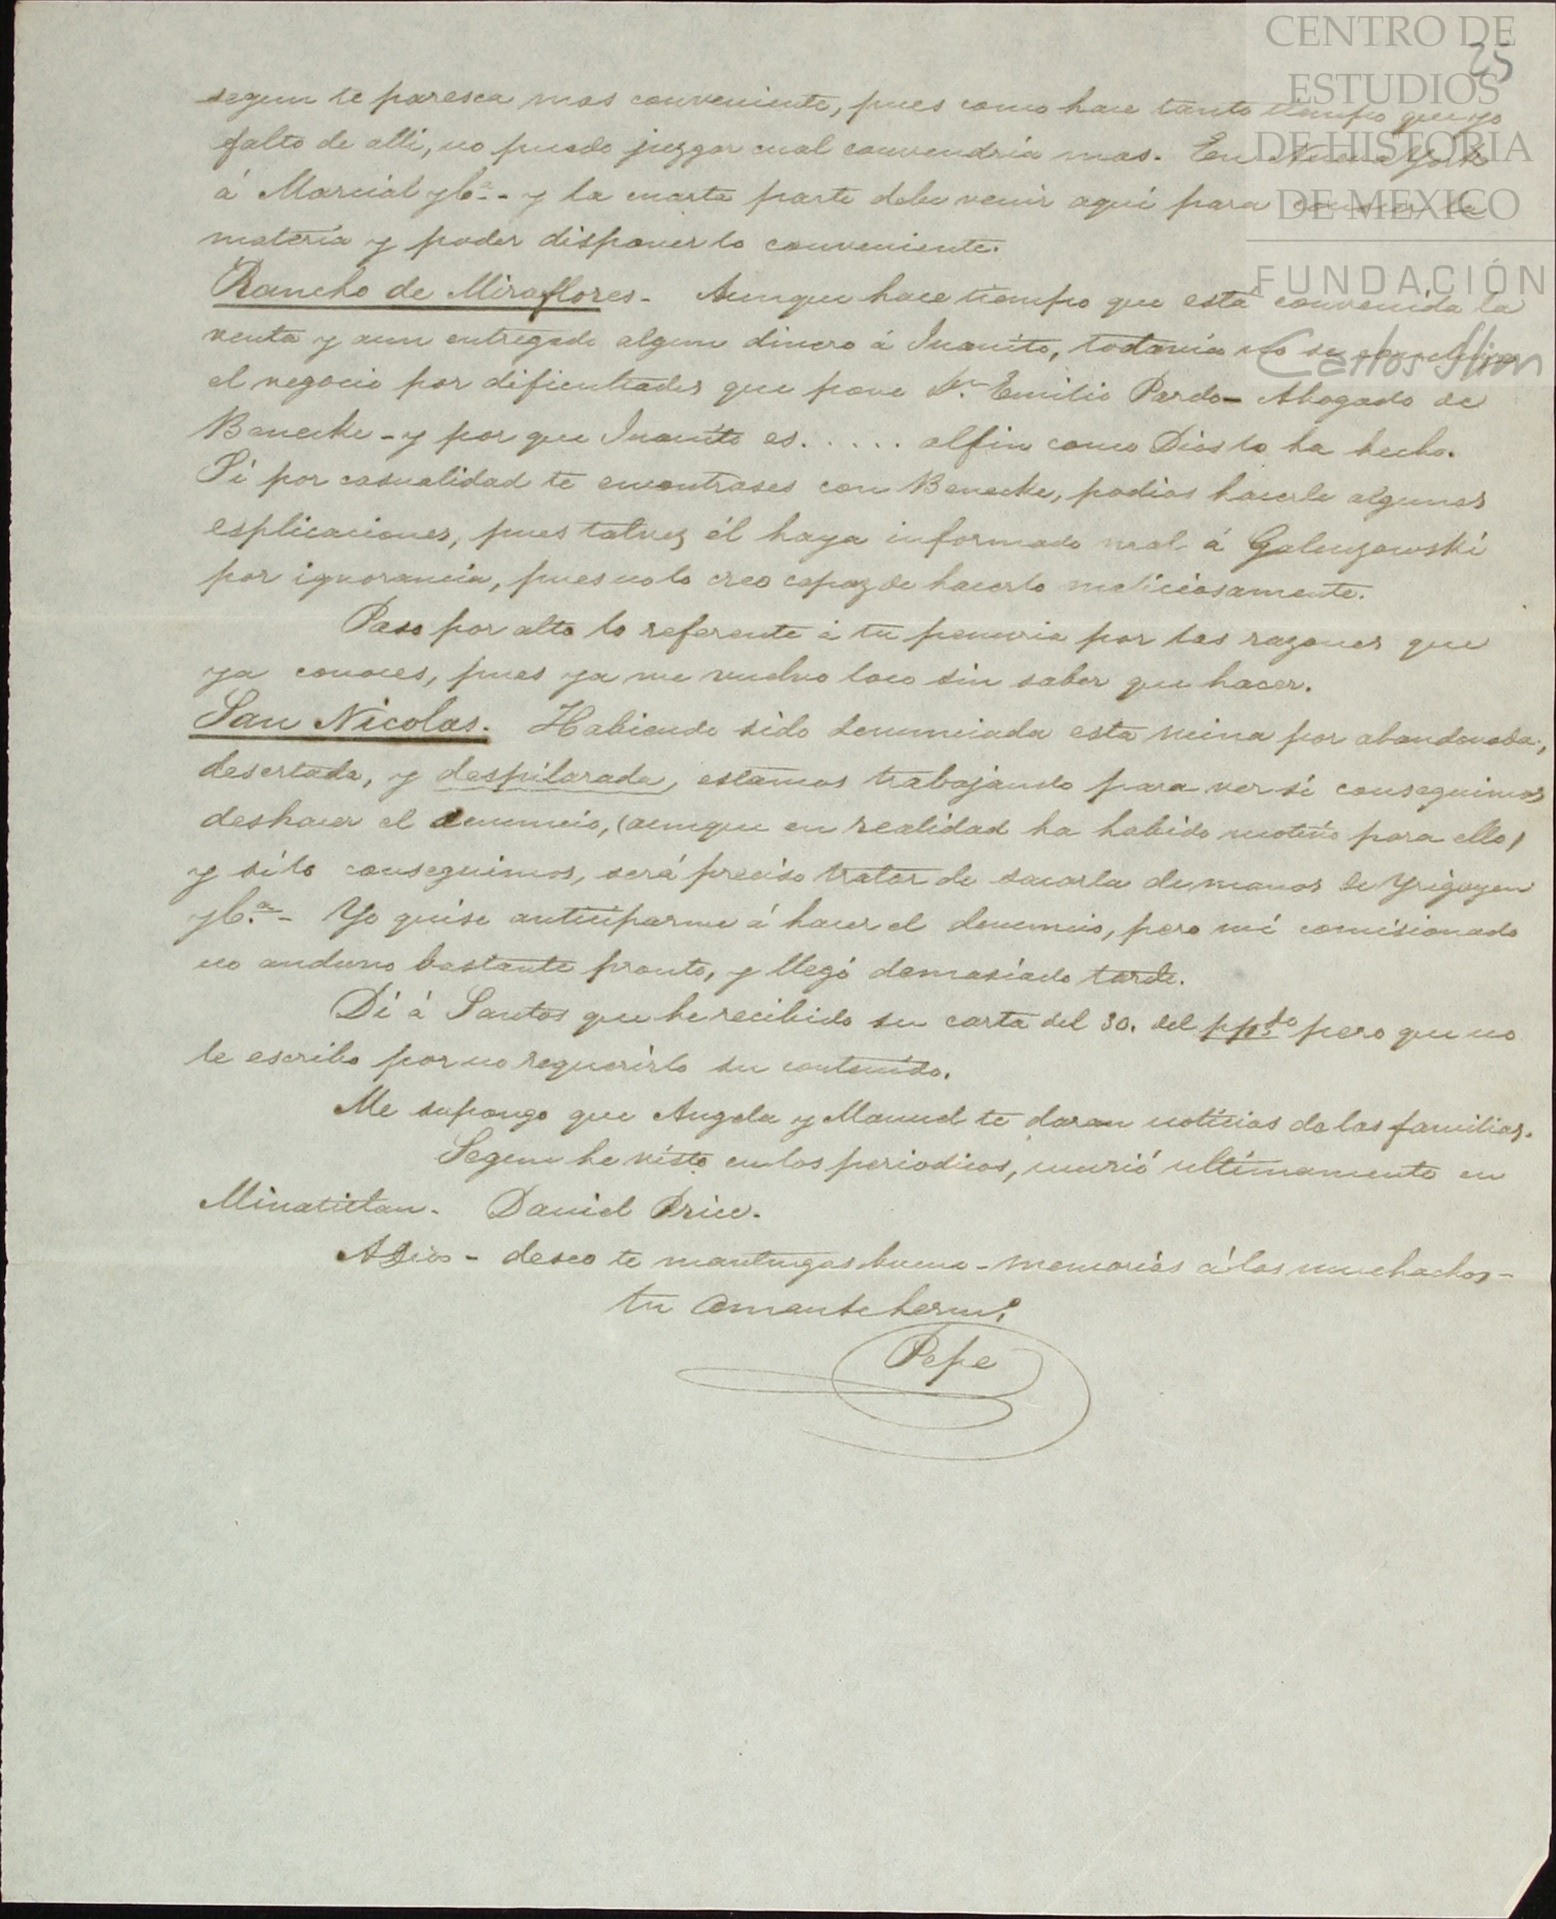 CENTRO DE
ESTUDIOS
DE HISTORIA
DE MEXICO
FUNDACIÓN
Carlos Slim
25
segun te paresca mas conveniente, pues como hace tanto tiempo que yo
falto de alli, no puedo juzgar cual convendria mas. En Nueva York
á Marcial y Cª. - y la cuarta parte debe venir aquí para conocer la
materia y poder disponer lo conveniente.
Rancho de Miraflores - Aunque hace tiempo que está convenida la
venta y aun entregado algun dinero á Juanito, todavia no se concluye
el negocio por dificultades que pone Dn. Emilio Pardo - Abogado de
Benecke - y por que Juanito es . . . . . al fin como Dios lo ha hecho.
Si por casualidad te encontrases con Benecke, podias hacerle algunas
esplicaciones, pues talvez él haya informado mal á Galenzowski
por ignorancia, pues no lo creo capaz de hacerlo maliciosamente.
Paso por alto lo referente á tu penuria por las razones que
ya conoces, pues ya me vuelvo loco sin saber que hacer.
San Nicolas. Habiendo sido denunciada esta mina por abandonada,
desertada, y despilarada, estamos trabajando para ver si conseguimos
deshacer el denuncio, (aunque en realidad ha habido motivo para ello)
y si lo conseguimos, será preciso tratar de sacarla de manos de Yrigoyen
y Cª. - Yo quise anticiparme á hacer el denuncio, pero mi comisionado
no anduvo bastante pronto, y llegó demasiado tarde.
Di á Santos que he recibido su carta del 30. del ppdo pero que no
le escribo por no requerirlo su contenido.
Me supongo que Angela y Manuel te daran noticias de las familias.
Segun he visto en los periodicos, murió ultimamente en
Minatitlan. Daniel Price.
Adios - deseo te mantengas bueno - memorias á los muchachos -
tu amante hermº.
Pepe